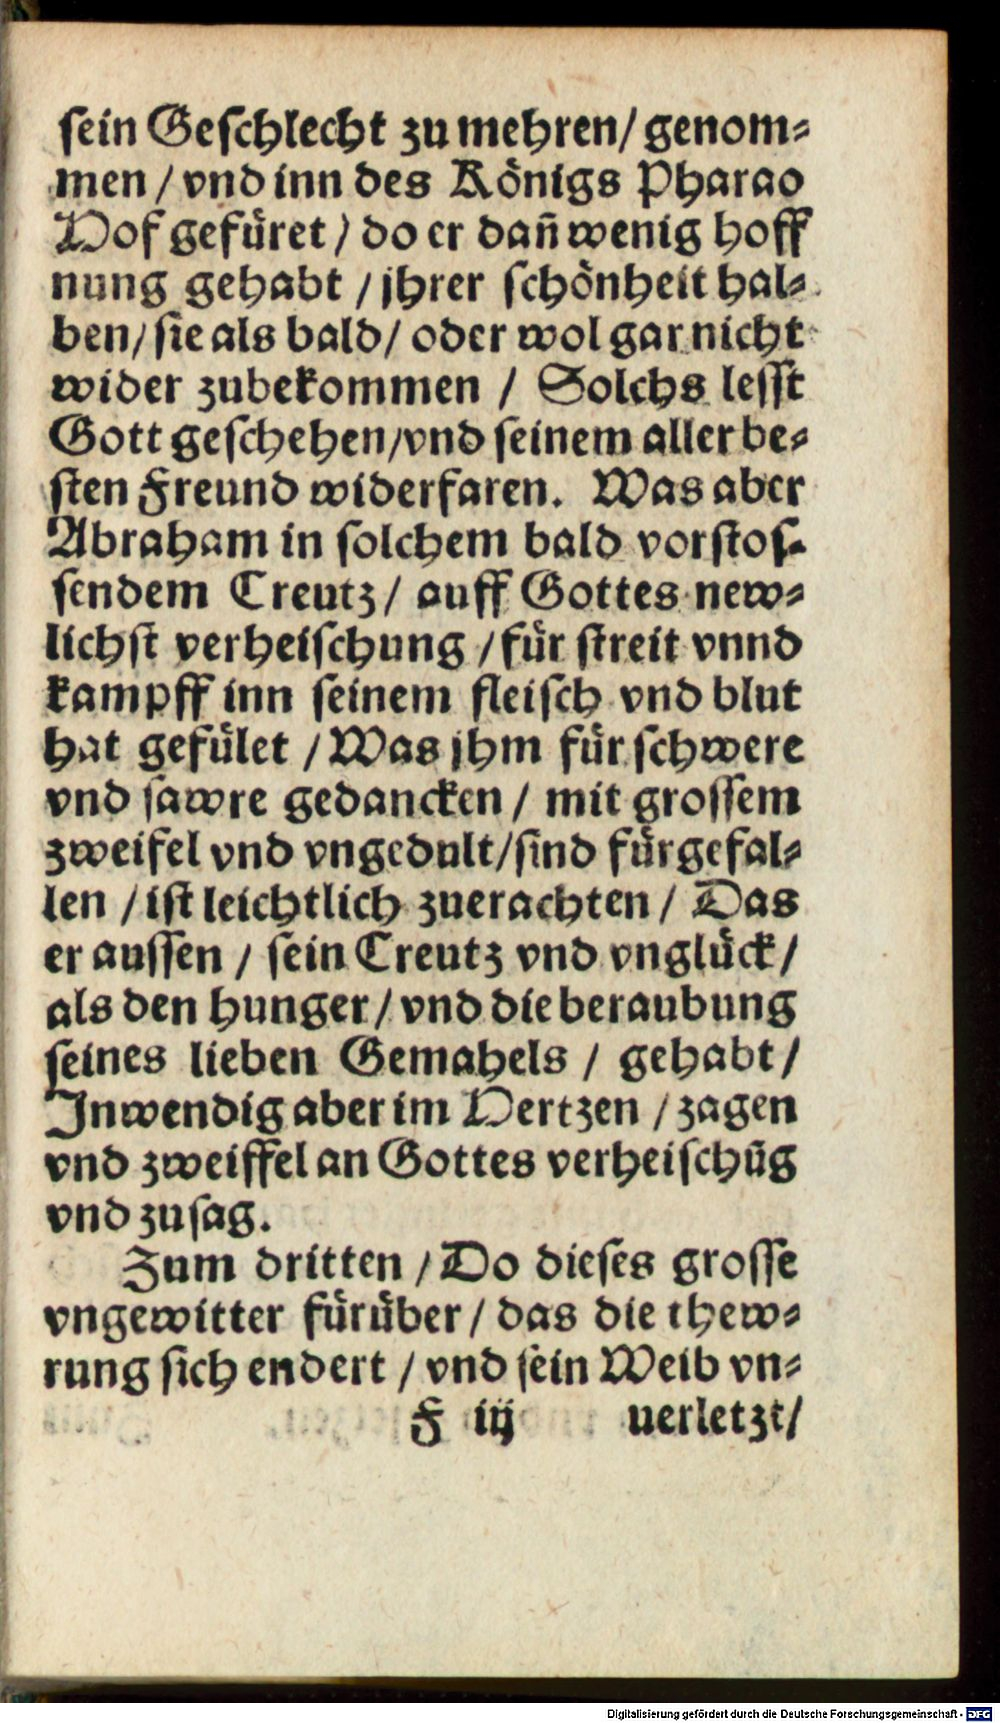 sein Geschlecht zu mehren/ genom⸗
men / vnd inn des Königs Pharao
Hof gefüret / do er dañ wenig hoff
nung gehabt / jhrer schönheit hal⸗
ben/ sie als bald/ oder wol gar nicht
wider zubekommen / Solchs lesst
Gott geschehen/vnd seinem aller be⸗
sten Freund widerfaren. Was aber
Abraham in solchem bald vorstos⸗
sendem Creutz / auff Gottes new⸗
lichst verheischung / für streit vnnd
kampff inn seinem fleisch vnd blut
hat gefület / Was jhm für schwere
vnd sawre gedancken / mit grossem
zweifel vnd vngedult/sind fürgefal⸗
len / ist leichtlich zuerachten / Das
er aussen / sein Creutz vnd vnglück /
als den hunger / vnd die beraubung
seines lieben Gemahels / gehabt /
Inwendig aber im Hertzen / zagen
vnd zweiffel an Gottes verheischũg
vnd zusag.
Zum dritten / Do dieses grosse
vngewitter fürüber / das die thew⸗
rung sich endert / vnd sein Weib vn⸗
F iij uerletzt/
Digitalisierung gefördert durch die Deutsche Forschungsgemeinschaft - DFG